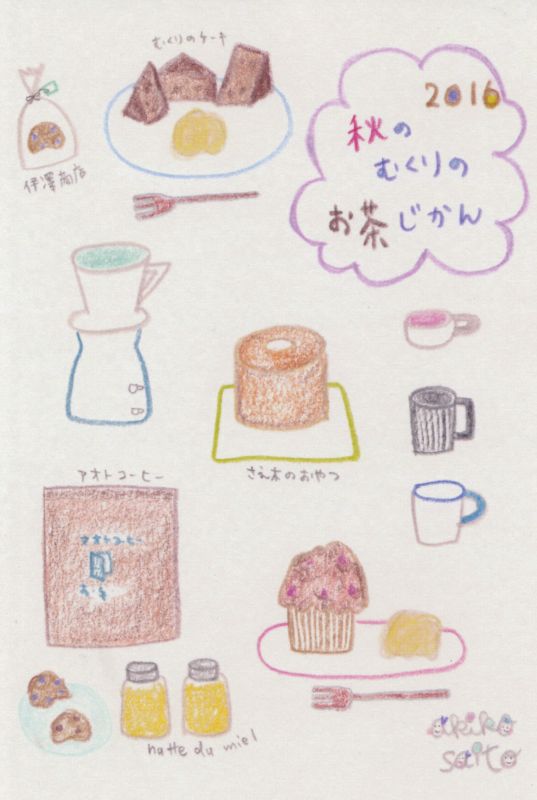 むくりのケーキ
2016
秋の
むくりの
お茶じかん
伊澤商店
さえ木のおやつ
アオトコーヒー
アオトコーヒー
natte du miel
akiko
saito